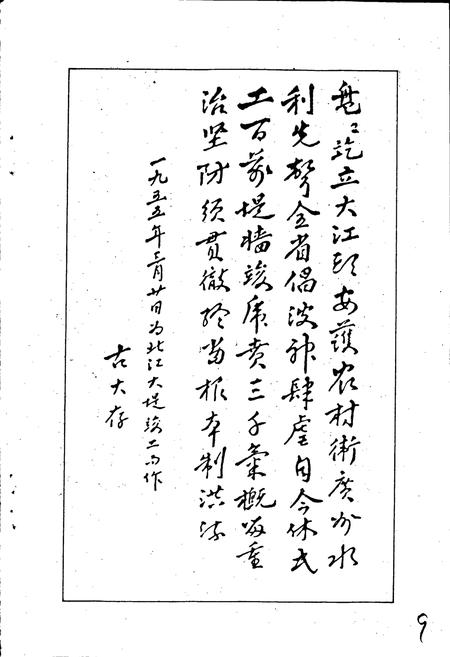 巍巍屹立大江头安护农村卫广州水
利先声全省倡波神肆虐自今休民
工百万堤墙竣库费三千气概留重
治坚防须贯彻终当根本制洪流
一九五五年三月廿日为北江大堤竣工而作
古大存
9